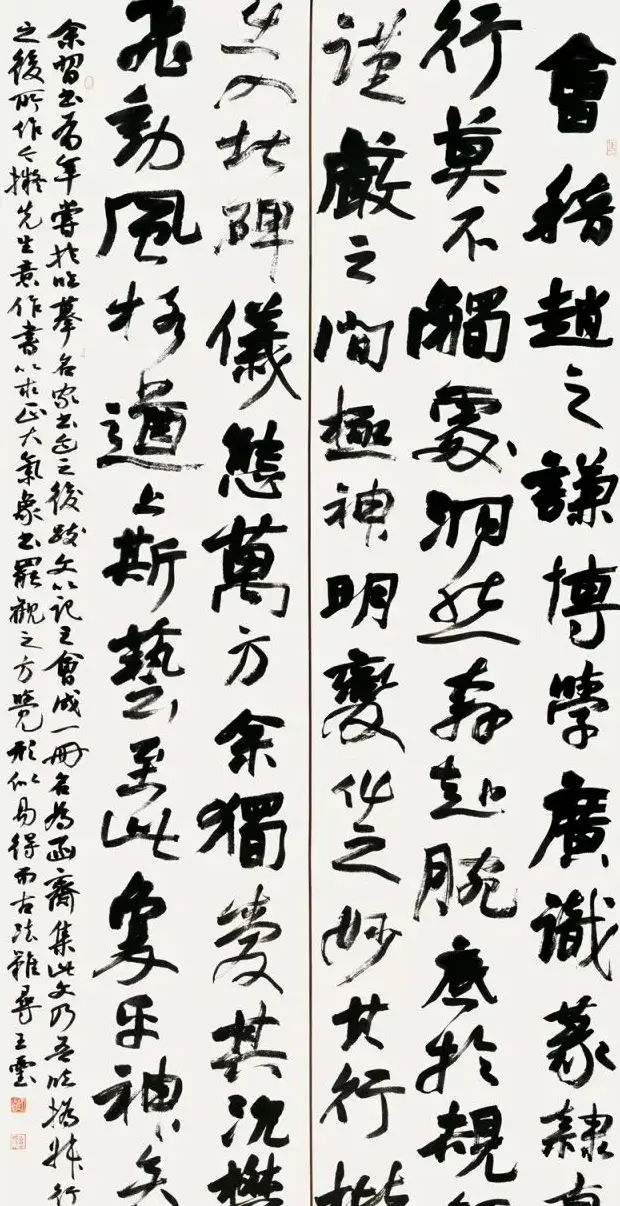 會稽趙之謙博學廣識篆隸真
行莫不觸處洞然奔赴腕底於規
謹嚴之間極神明變化之妙其行楷
入此碑儀態萬方余獨愛其沉樸
飛動風格遒上斯藝至此彙乎神矣
余習書有年嘗於臨摹名家書迹之後跋文以記之會成一冊名為齋集此文乃吾臨撝叔行
之後所作今擬先生意作書以求正大氣象書罷觀之方覺形似易得而古法難尋王雲